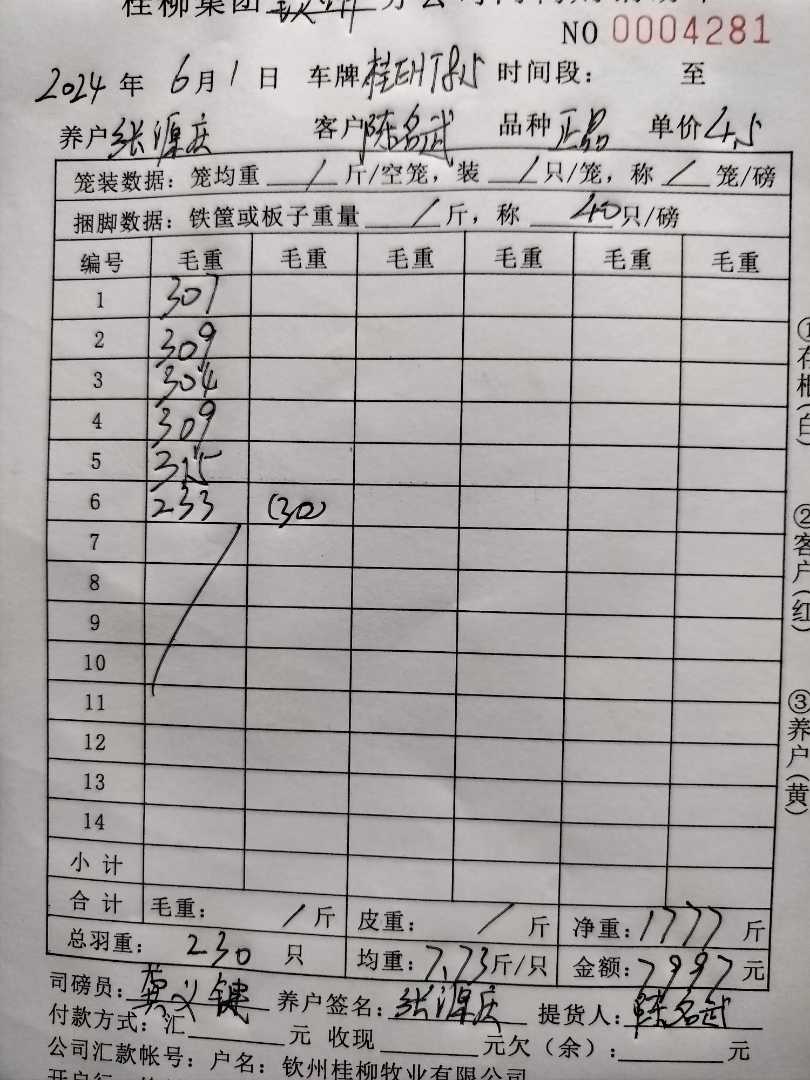 桂柳集团
NO 0004281
2024 年 6月1日 车牌桂EHT815 时间段： 至
养户张源庆 客户陈名武 品种正品 单价4.5
笼装数据：笼均重 / 斤/空笼，装 / 只/笼，称 / 笼/磅
捆脚数据：铁筐或板子重量 / 斤，称 40 只/磅
编号 毛重 毛重 毛重 毛重 毛重 毛重
1 307
2 309
3 304
4 309
5 315
6 233 (30)
7
8
9
10
11
12
13
14
小计
合计 毛重： / 斤 皮重： / 斤 净重：1777 斤
总羽重： 230 只 均重：7.73斤/只 金额：7997元
司磅员： 养户签名：张源庆 提货人：陈名武
付款方式：汇 元 收现 元欠（余）： 元
公司汇款帐号：户名：钦州桂柳牧业有限公司
②客户（红）
③养户（黄）